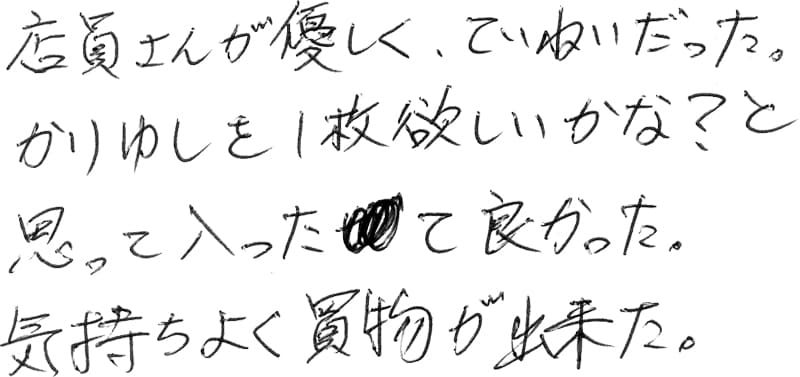 店員さんが優しく、ていねいだった。
かりゆしを1枚欲しいかな?と
思って入ったて良かった。
気持ちよく買物が出来た。